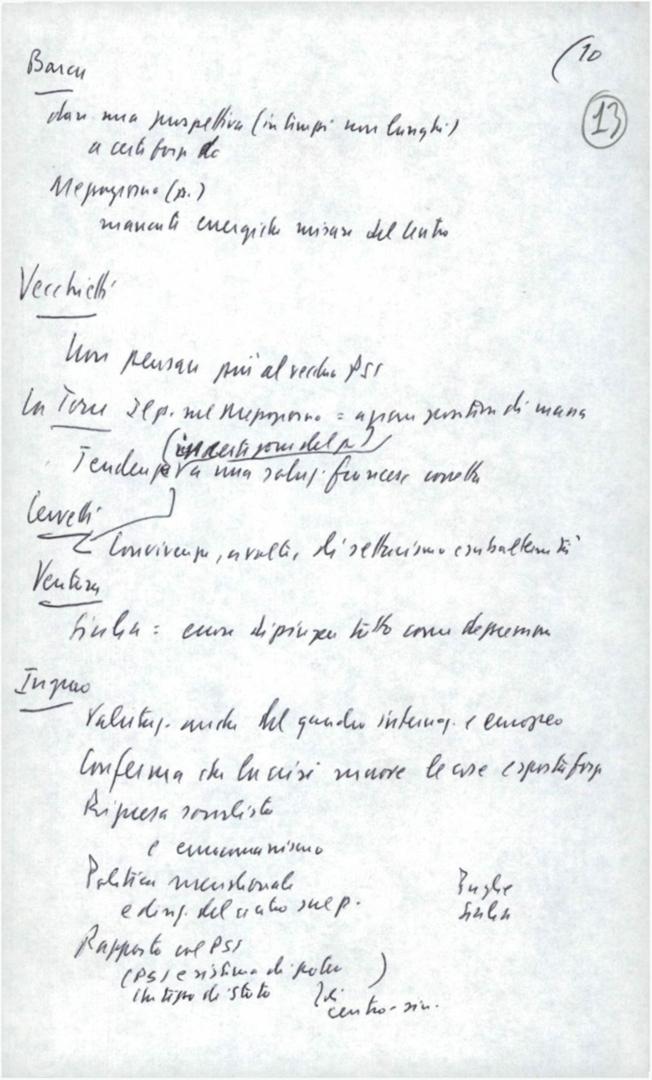 (10
13
Barca
dare una prospettiva (in tempi non lunghi)
a certe forze
Mezzogiorno (p.)
mancate energiche misure del Centro
Vecchietti
Non pensare più al vecchio PSI
La Torre Il p. nel Mezzogiorno = di massa
(in certe zone del p.)
Tendenza a una soluz. francese corretta
Cervetti
Convivenza, a volte, di settarismo e subalternità
Ventura
Sicilia = errore dipingere tutto come depressione
Ingrao
Valutaz. anche del quadro internaz. e europeo
Conferma che la crisi muove le cose e sposta forze
Ripresa socialista
e eurocomunismo
Politica meridionale
e direz. del centro sul p.
Puglie
Sicilia
Rapporto col PSI
(PSI e sistema di potere )
un tipo di stato
di
centro-sin.